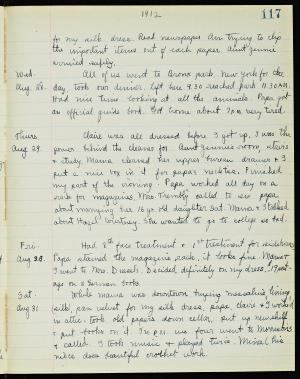 1912
117
for my silk dress. Read newspaper. Am trying to clip
the important items out of each paper. Aunt Jennie
arrived safely.
Wed. All of us went to Bronx park, New York for the
Aug. 28. day. took our dinner. Left here 9.30 reached park 11.30 A.M.
Had nice time looking at all the animals. Papa got
an official guide book. Got home about 7 P.M. very tired.
Thurs. Claire was all dressed before I got up. I was the
Aug 29. power behind the cleaner for Aunt Jennie's room, stairs
& study. Mama cleaned her upper bureau drawer & I
put a nice box in it for papa's neckties. Finished
my part of the ironing. Papa worked all day on a
rack for magazines. Mrs. called to see papa
about managing her 16 yr. old daughter Sat. Mama & I talked
about Hazel Courtney. She wanted to go to college so bad.
Fri. Had 9th face treatment & 1st treatment for
Aug 30. Papa stained the magazine rack, it looks fine. Mama &
I went to Mrs. Decided definitely on my dress.
ago on a German boat.
Sat. While mama was downtown buying messaline lining
Aug 31 (silk), pan velvet for my silk dress, papa, Claire & I worked
in attic. took old papers down cellar, put up new shelf
& put books on it. In P.M. we four went to
& called. I took music & played twice. Minra(?) his
niece does beautiful crochet work.